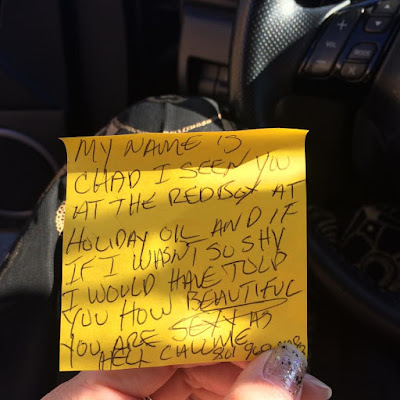 MY NAME IS
CHAD I SEEN YOU
AT THE REDBOX AT
HOLIDAY OIL AND IF
IF I WASN'T SO SHY
I WOULD HAVE TOLD
YOU HOW BEAUTIFUL
YOU ARE SEXY AS
HELL CALL ME
VOL
MODE